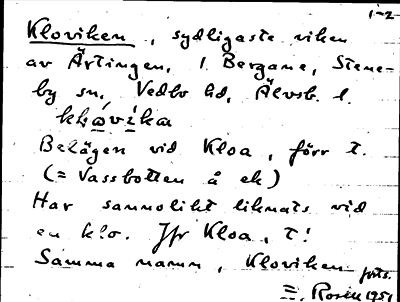 1-2
Kloviken, sydligaste viken
av Ärtingen, l. Bergane, Stene-
by sn, Vedbo hd, Älvsb. l.
klǻvìka
Belägen vid Kloa, förr t.
(= Vassbotten å ek)
Har sannolikt liknats vid
en klo. Jfr Kloa, t!
Samma namn, Kloviken forts.
E. Rosén 1951